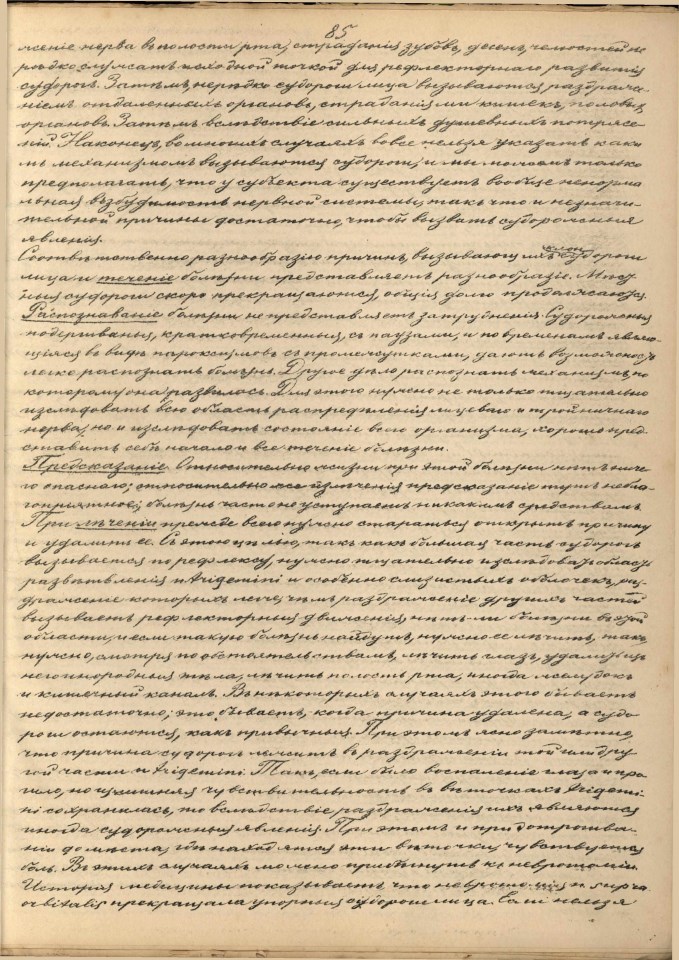 85
женіе нерва въ полости рта, страданія зубовъ, десенъ, челюстей не
рѣдко служатъ исходной точкой для рефлекторнаго развитія
судорогъ. Затѣмъ, нерѣдко судороги лица вызываются раздраже-
ніемъ отдаленныхъ органовъ, страданіями кишекъ, половых
органовъ. Затѣмъ вслѣдствіе сильныхъ душевныхъ потрясе-
ній. Наконецъ, во многихъ случаяхъ вовсе нельзя указать каки
мъ механизмомъ вызываются судороги, и мы можемъ только
предполагать, что у субъекта существуетъ вообще ненорма
льная возбудимость нервной системы, такъ что и незначи-
тельной причины достаточно, чтобы вызвать судорожныя
явленія.
Соотвѣтственно разнообразію причинъ, вызывающихъ судороги
лица и теченіе болѣзни представляетъ разнообразіе.
ныя судороги скоро прекращаются, общія долго продолжаются.
Распознаваніе болѣзни не представляетъ затрудненія. Судорожныя
подергиванья, кратковременныя, съ паузами, и по временамъ являю-
щіяся въ видѣ пароксизмовъ съ промежутками, даютъ возможность
легко распознать болѣзнь. Другое дѣло распознать механизмъ, по
которому она развилась. Для этого нужно не только тщательно
изслѣдовать всю область распредѣленія лицеваго и тройничнаго
нерва, но и изслѣдовать состояніе всего организма, хорошо пред-
ставить себѣ начало и все теченіе болѣзни.
Предсказаніе. Относительно жизни при этой болѣзни нѣтъ ниче-
го опаснаго; относительно же излѣченія предсказаніе тутъ небла-
гопріятное; болѣзнь часто не уступаетъ никакимъ средствамъ.
При лѣченіи прежде всего нужно стараться открыть причину
и удалить ее. Съ этою цѣлью, такъ какъ большая часть судорогъ
вызывается по рефлексу, нужно тщательно изслѣдовать область
развѣтвленія n. trigemini и особенно слизистыхъ оболочекъ, раз-
драженіе которыхъ легче, чѣмъ раздраженіе другихъ частей
вызываетъ рефлекторныя движенія, нѣтъ-ли болѣзни въ этой
области, и если такую болѣзнь найдутъ, нужно ее лѣчить, такъ,
нужно, смотря по обстоятельствамъ, лѣчить глазъ, удалить изъ
него инородныя тѣла, лѣчить полость рта, иногда желудокъ
и кишечный каналъ. Въ нѣкоторыхъ случаяхъ этого бываетъ
недостаточно; это бываетъ, когда причина удалена, а судо
роги остаются, какъ привычныя. При этомъ ясно замѣтно,
что причина судорогъ лежитъ въ раздраженіи той или дру
гой части n. trigemini. Такъ, если было воспаленіе глаза и про
шло, но чувствительность въ вѣточкахъ trigemi-
ni сохранилась, то вслѣдствіе раздраженія ихъ являются
иногда судорожныя явленія. При этомъ и при дотрогива-
ніи до мѣста, гдѣ находятся эти вѣточки, чувствуется
боль. Въ этихъ случаяхъ можно прибѣгнуть къ невротоміи.
Исторія медицины показываетъ что невротомія n. supra
orbitalis прекращала упорныя судороги лица. Если нельзя